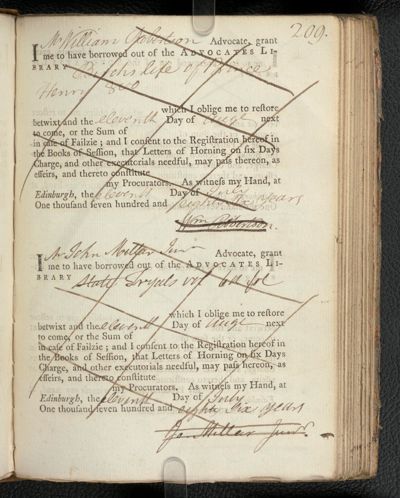 209.
I Mr William Robinson Advocate, grant
me to have borrowed out of the ADVOCATES LI-
BRARY Birchs life of Prince
Henry 8vo
which I oblige me to reſtore
betwixt and the eleventh Day of Augt next
to come, or the Sum of
in caſe of Failzie ; and I conſent to the Regiſtration hereof in
the Books of Seſſion, that Letters of Horning on ſix Days
Charge, and other executorials needful, may paſs thereon, as
effeirs, and thereto conſtitute
my Procurators. As witneſs my Hand, at
Edinburgh, the elevent Day of July
One thouſand ſeven hundred and eighty six years
Wm Robinson.
I Mr John Millar Junr Advocate, grant
me to have borrowed out of the ADVOCATES LI-
BRARY State Tryals vol 6th fol
which I oblige me to reſtore
betwixt and the elevent Day of Augt next
to come, or the Sum of
in caſe of Failzie ; and I conſent to the Regiſtration hereof in
the Books of Seſſion, that Letters of Horning on ſix Days
Charge, and other executorials needful, may paſs hereon, as
effeirs, and thereto conſtitute
my Procurators. As witneſs my Hand, at
Edinburgh, the elevent Day of July
One thouſand ſeven hundred and eighty six years
Jo. Millar Junr.